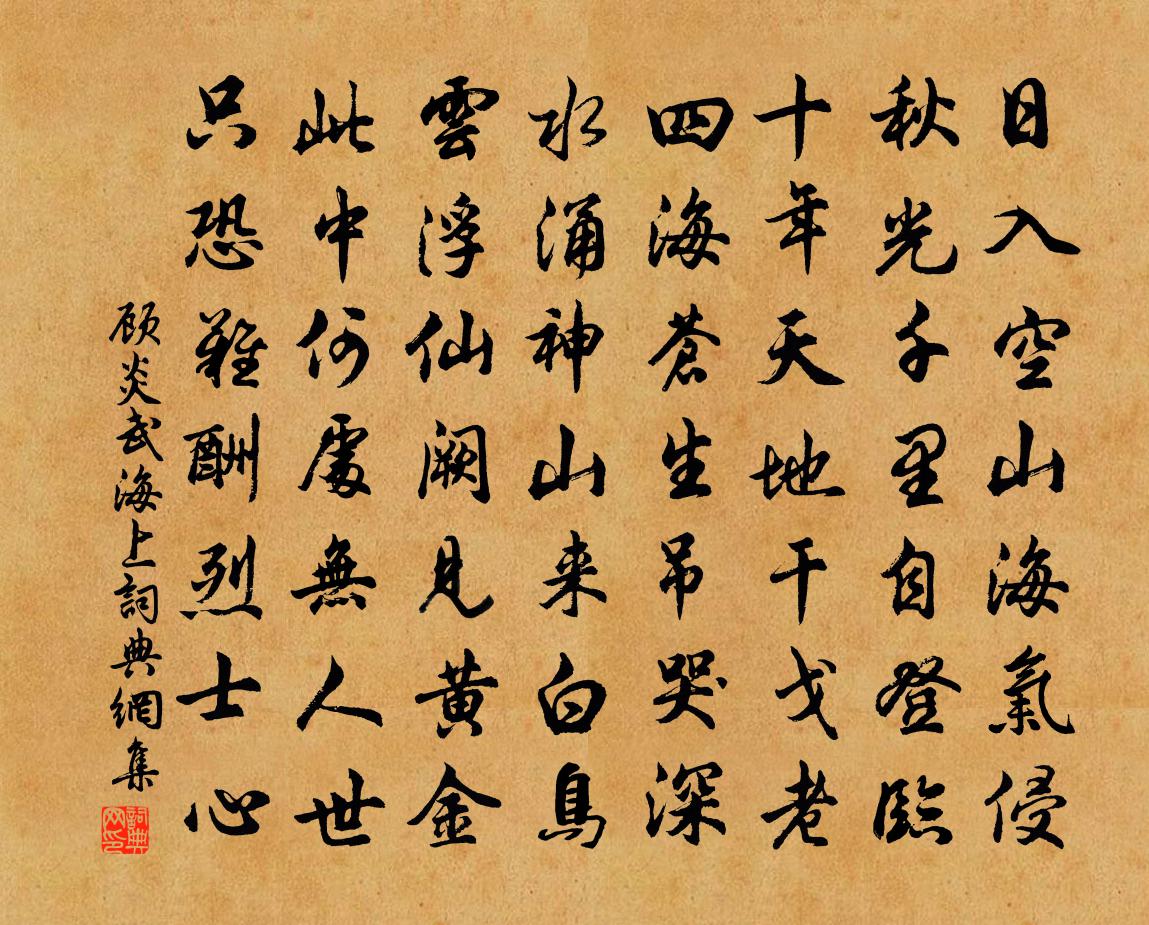 日入空山海氣侵
秋光千里自登臨
十年天地干戈老
四海蒼生吊哭深
水涌神山来白鳥
雲浮仙闕見黄金
此中何處無人世
只恐難酬烈士心
顾炎武海上詞典網集
詞典網印